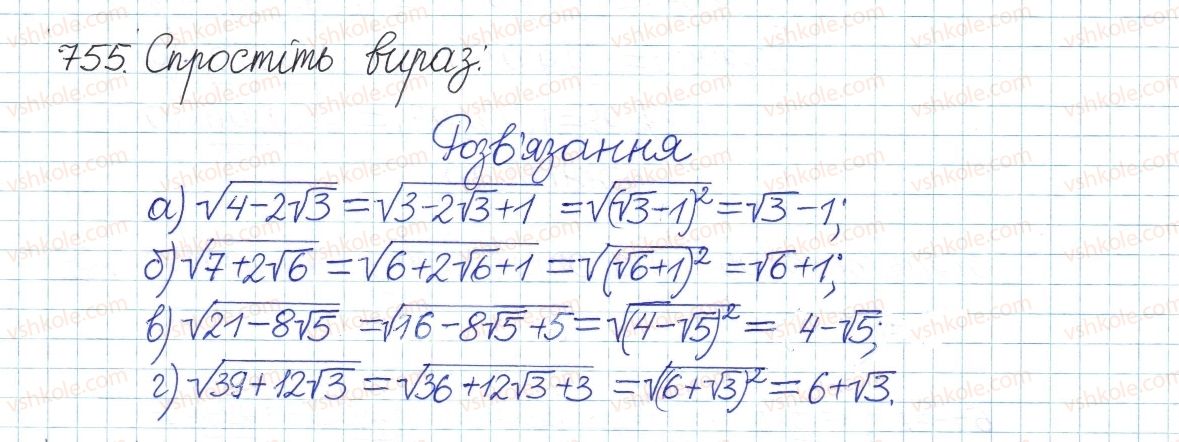 755. Спростіть вираз:
Розв'язання
а) √(4-2√3) = √(3-2√3+1) = √((√3-1)²) = √3-1;
б) √(7+2√6) = √(6+2√6+1) = √((√6+1)²) = √6+1;
в) √(21-8√5) = √(16-8√5+5) = √((4-√5)²) = 4-√5;
г) √(39+12√3) = √(36+12√3+3) = √((6+√3)²) = 6+√3.